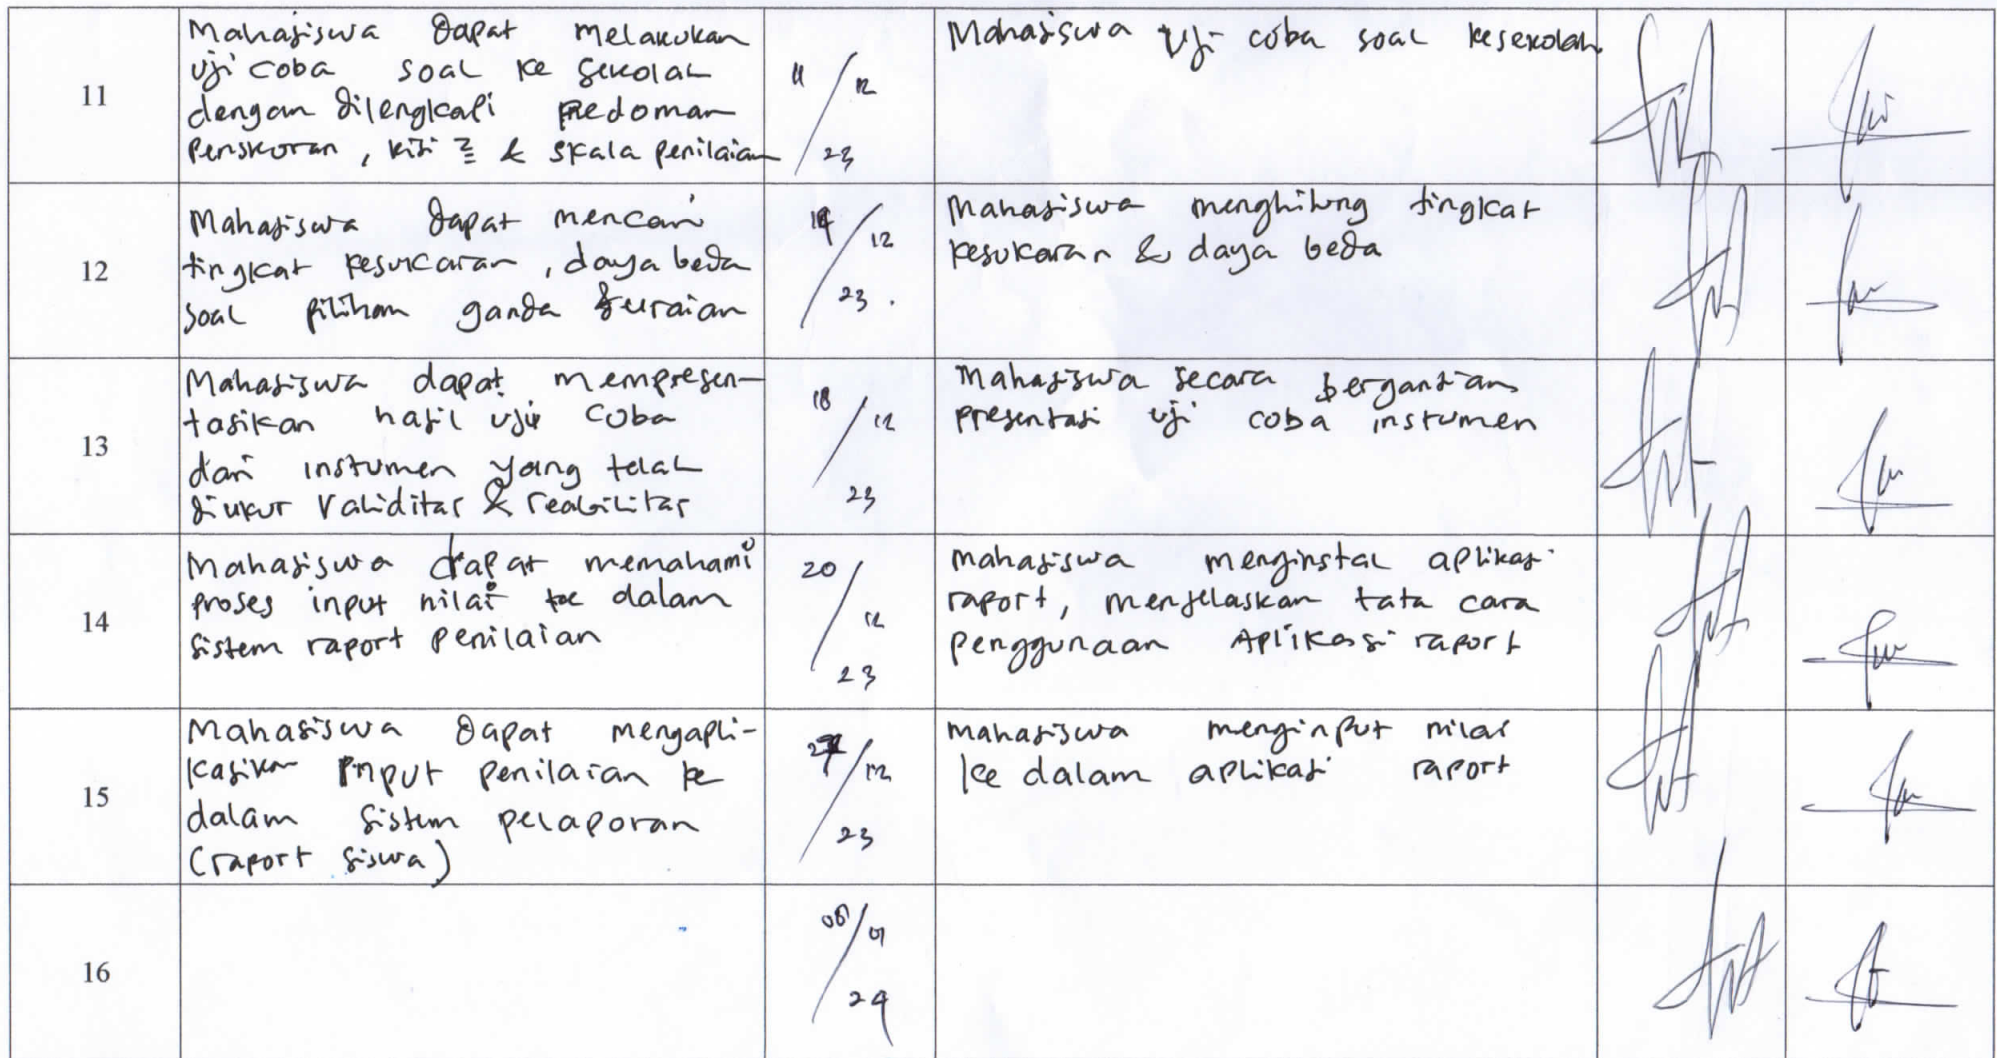 11
Mahasiswa dapat melakukan
uji coba soal ke sekolah
dengan dilengkapi pedoman
penskoran, kisi² & skala penilaian
11/12/23
Mahasiswa uji coba soal kesekolah
12
Mahasiswa dapat mencari
tingkat kesukaran, daya beda
soal pilihan ganda & uraian
12/23
Mahasiswa menghitung tingkat
kesukaran & daya beda
13
Mahasiswa dapat mempresen-
tasikan hasil uji coba
dari instumen yang telah
diukur validitas & reabilitas
18/12/23
Mahasiswa secara bergantian
presentasi uji coba instumen
14
Mahasiswa dapat memahami
proses input nilai ke dalam
sistem raport penilaian
20/12/23
Mahasiswa menginstal aplikasi
raport, menjelaskan tata cara
penggunaan Aplikasi raport
15
Mahasiswa dapat mengapli-
kasikan input penilaian ke
dalam sistem pelaporan
(raport siswa)
27/12/23
mahasiswa menginput nilai
ke dalam aplikasi raport
16
01/24